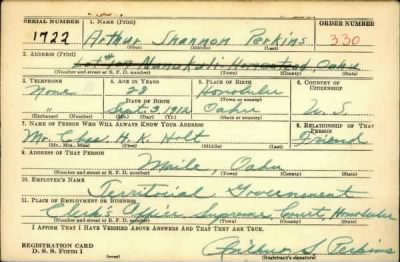 SERIAL NUMBER 1. NAME (Print) ORDER NUMBER
1722 Arthur Shannon Perkins 330
(First) (Middle) (Last)
2. ADDRESS (Print)
Nanakuli Homestead, Oahu
(Number and street or R. F. D. number) (Town) (County) (State)
3. TELEPHONE 4. AGE IN YEARS 5. PLACE OF BIRTH 6. COUNTRY OF CITIZENSHIP
None 28 Honolulu
(Town or county)
DATE OF BIRTH
" Sept. 2, 1912 Oahu U. S.
(Exchange) (Number) (Mo.) (Day) (Yr.) (State or country)
7. NAME OF PERSON WHO WILL ALWAYS KNOW YOUR ADDRESS 8. RELATIONSHIP OF THAT PERSON
Mr. Chas. K. Holt Friend
(Mr., Mrs., Miss) (First) (Middle) (Last)
9. ADDRESS OF THAT PERSON
Maile, Oahu
(Number and street or R. F. D. number) (Town) (County) (State)
10. EMPLOYER'S NAME
Territorial Government
11. PLACE OF EMPLOYMENT OR BUSINESS
Clerk's Office, Supreme Court, Honolulu
(Number and street or R. F. D. number) (Town) (County) (State)
I AFFIRM THAT I HAVE VERIFIED ABOVE ANSWERS AND THAT THEY ARE TRUE.
REGISTRATION CARD
D. S. S. Form 1 (over) Arthur S. Perkins
(Registrant's signature)